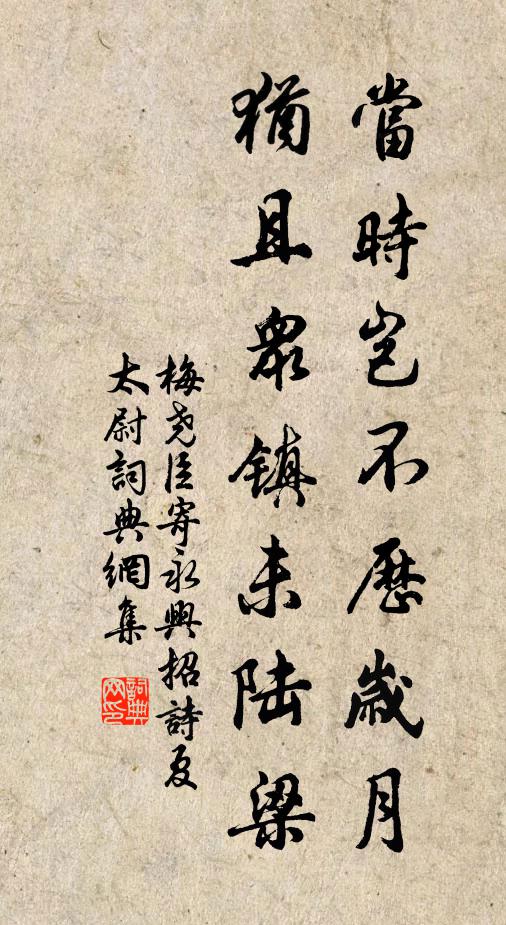 當時岂不歷歲月
猶且眾鎮未陆梁
梅尧臣寄永興招詩夏
太尉詞典網集
詞典网印